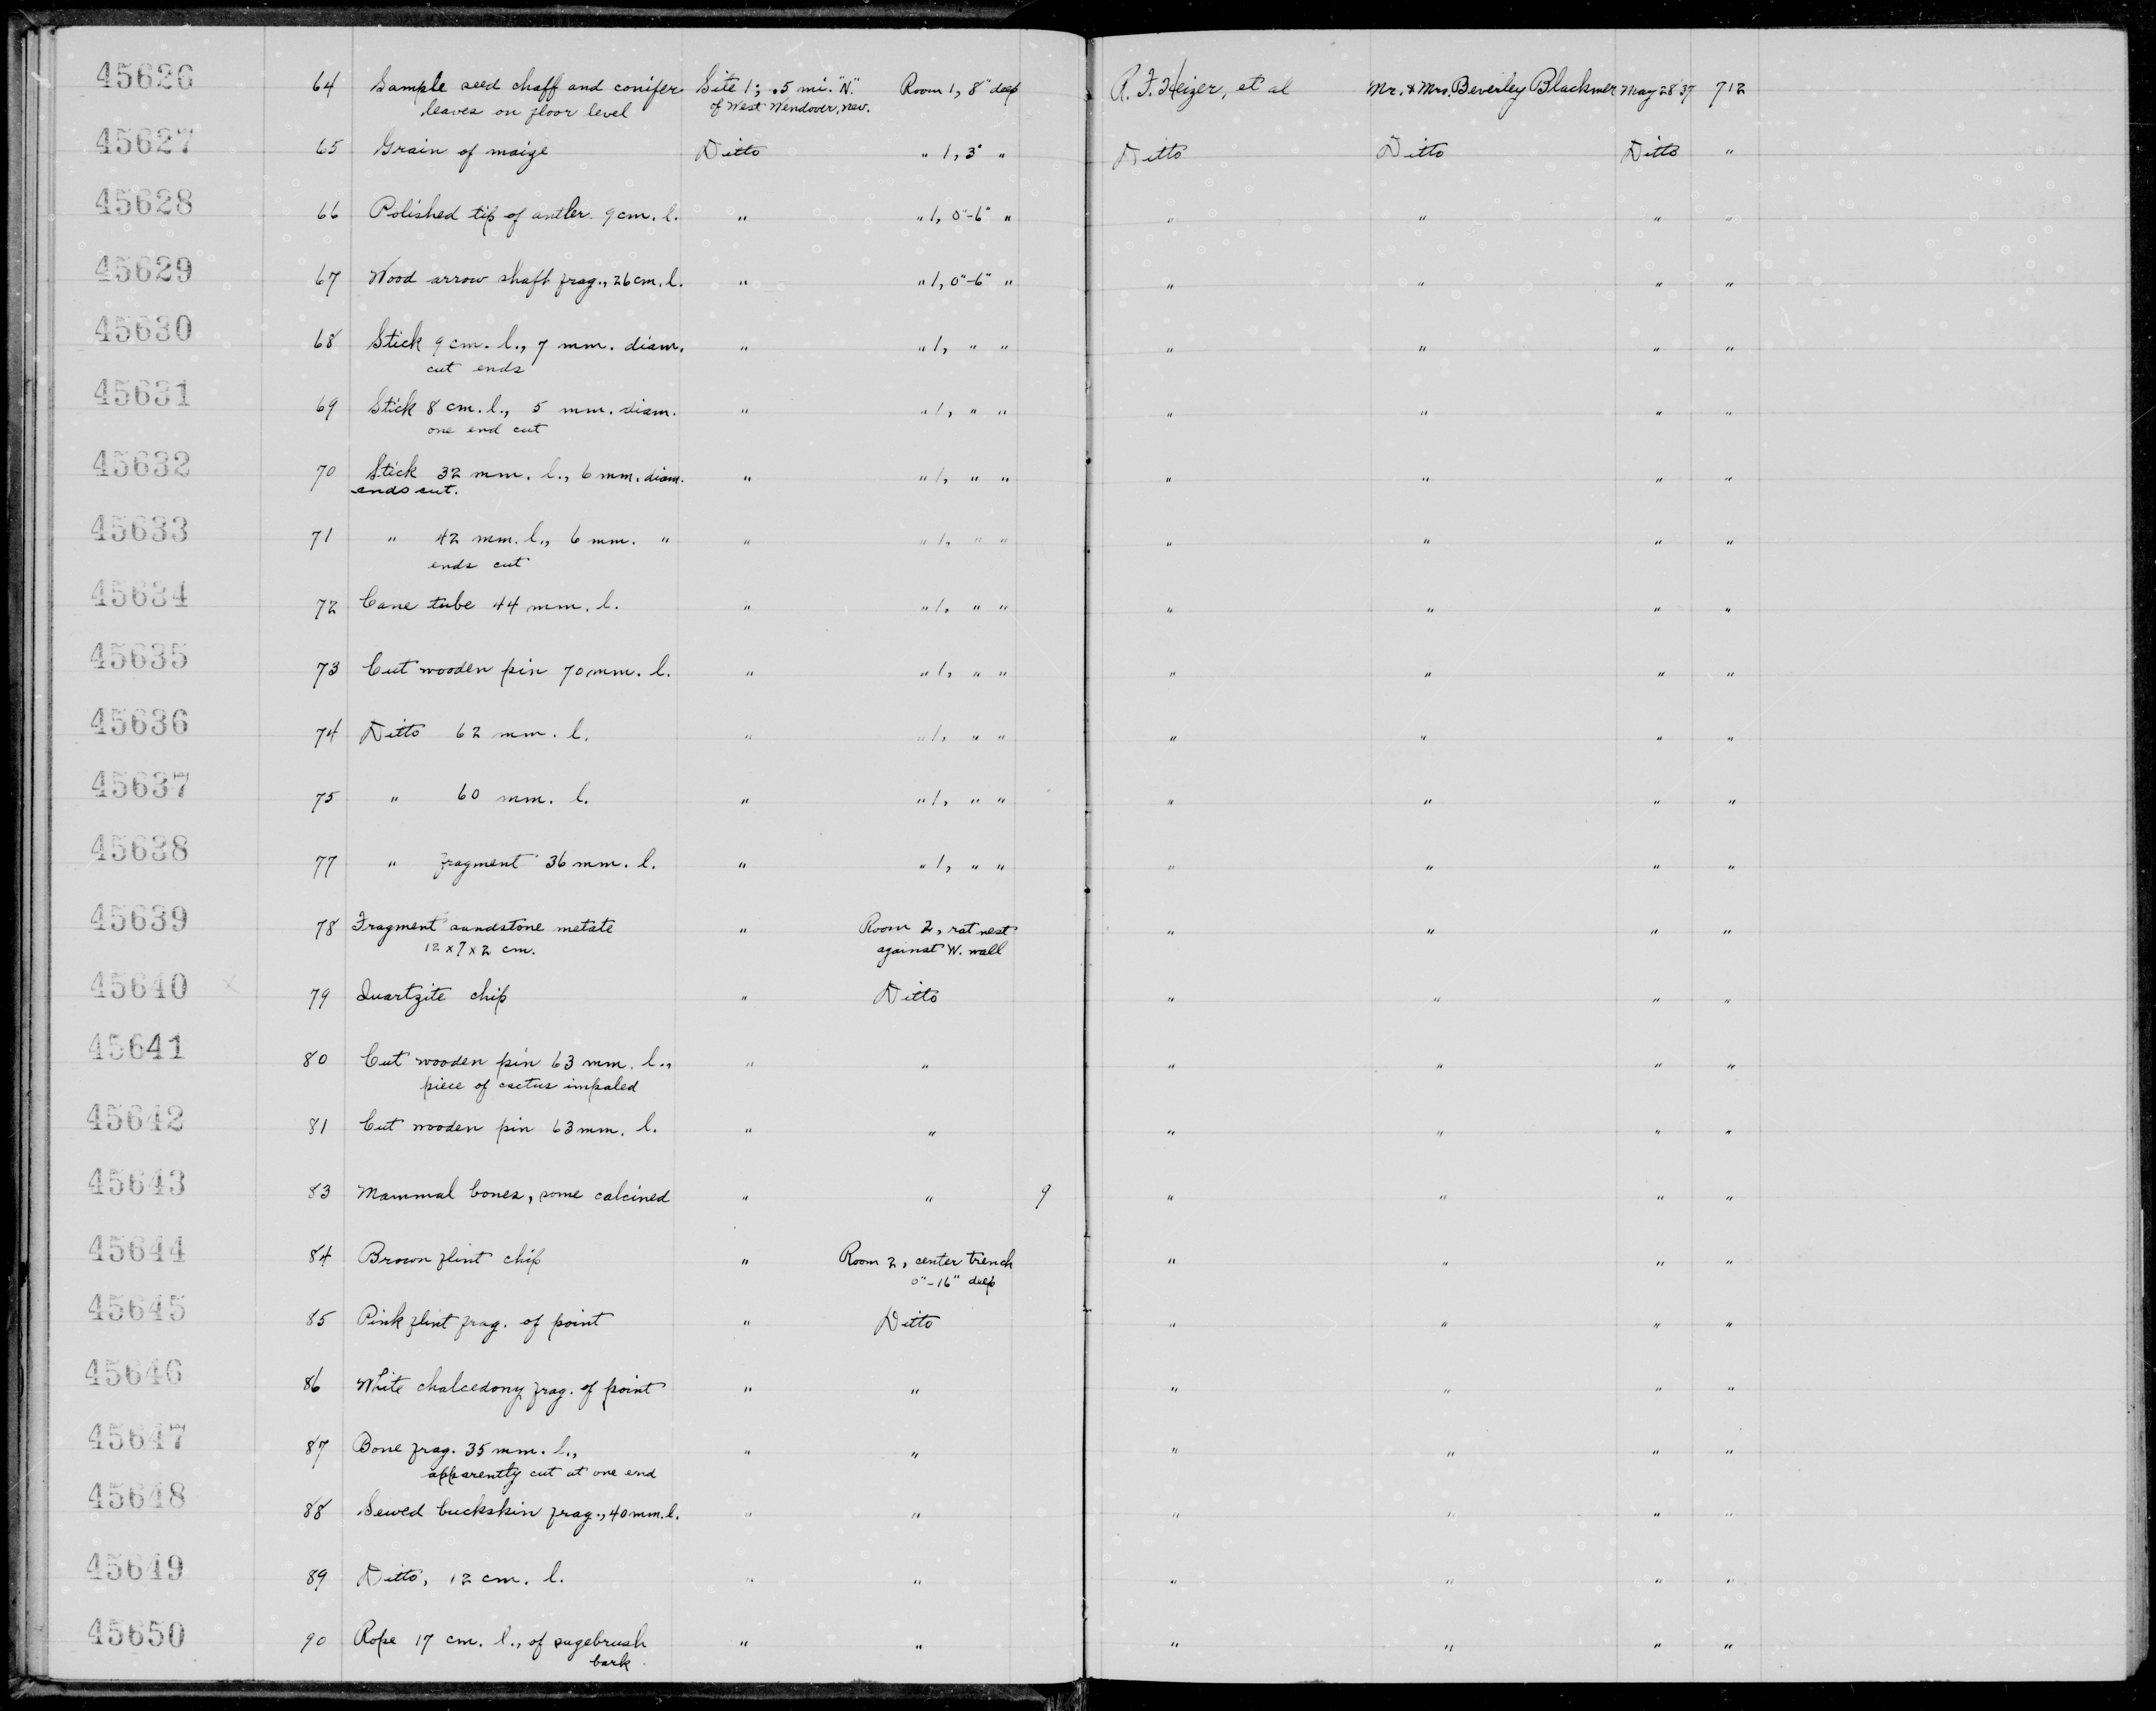 45626 64 Sample seed chaff and conifer Site 1; .5 mi. "N." Room 1, 8" deep R. F. Heizer, et al Mr. & Mrs. Beverley Blackmer May 28 '37 712
leaves on floor level of West Wendover, Nev.
45627 65 Grain of maize Ditto " 1, 3" " Ditto Ditto Ditto "
45628 66 Polished tip of antler. 9 cm. l. " " 1, 0"-6" " " " " "
45629 67 Wood arrow shaft frag., 26 cm. l. " " 1, 0"-6" " " " " "
45630 68 Stick 9 cm. l., 7 mm. diam. " " 1, " " " " " "
cut ends
45631 69 Stick 8 cm. l., 5 mm. diam. " " 1, " " " " " "
one end cut
45632 70 Stick 32 mm. l., 6 mm. diam. " " 1, " " " " " "
ends cut.
45633 71 " 42 mm. l., 6 mm. " " " 1, " " " " " "
ends cut
45634 72 Cane tube 44 mm. l. " " 1, " " " " " "
45635 73 Cut wooden pin 70 mm. l. " " 1, " " " " " "
45636 74 Ditto 62 mm. l. " " 1, " " " " " "
45637 75 " 60 mm. l. " " 1, " " " " " "
45638 77 " fragment 36 mm. l. " " 1, " " " " " "
45639 78 Fragment sandstone metate " Room 2, rat nest " " " "
12 x 7 x 2 cm. against W. wall
45640 x 79 Quartzite chip " Ditto " " " "
45641 80 Cut wooden pin 63 mm. l., " " " " " "
piece of cactus impaled
45642 81 Cut wooden pin 63 mm. l. " " " " " "
45643 83 Mammal bones, some calcined " " 9 " " " "
45644 84 Brown flint chip " Room 2, center trench " " " "
0"-16" deep
45645 85 Pink flint frag. of point " Ditto " " " "
45646 86 White chalcedony frag. of point " " " " " "
45647 87 Bone frag. 35 mm. l., " " " " " "
apparently cut at one end
45648 88 Sewed buckskin frag., 40 mm. l. " " " " " "
45649 89 Ditto, 12 cm. l. " " " " " "
45650 90 Rope 17 cm. l., of sagebrush " " " " " "
bark